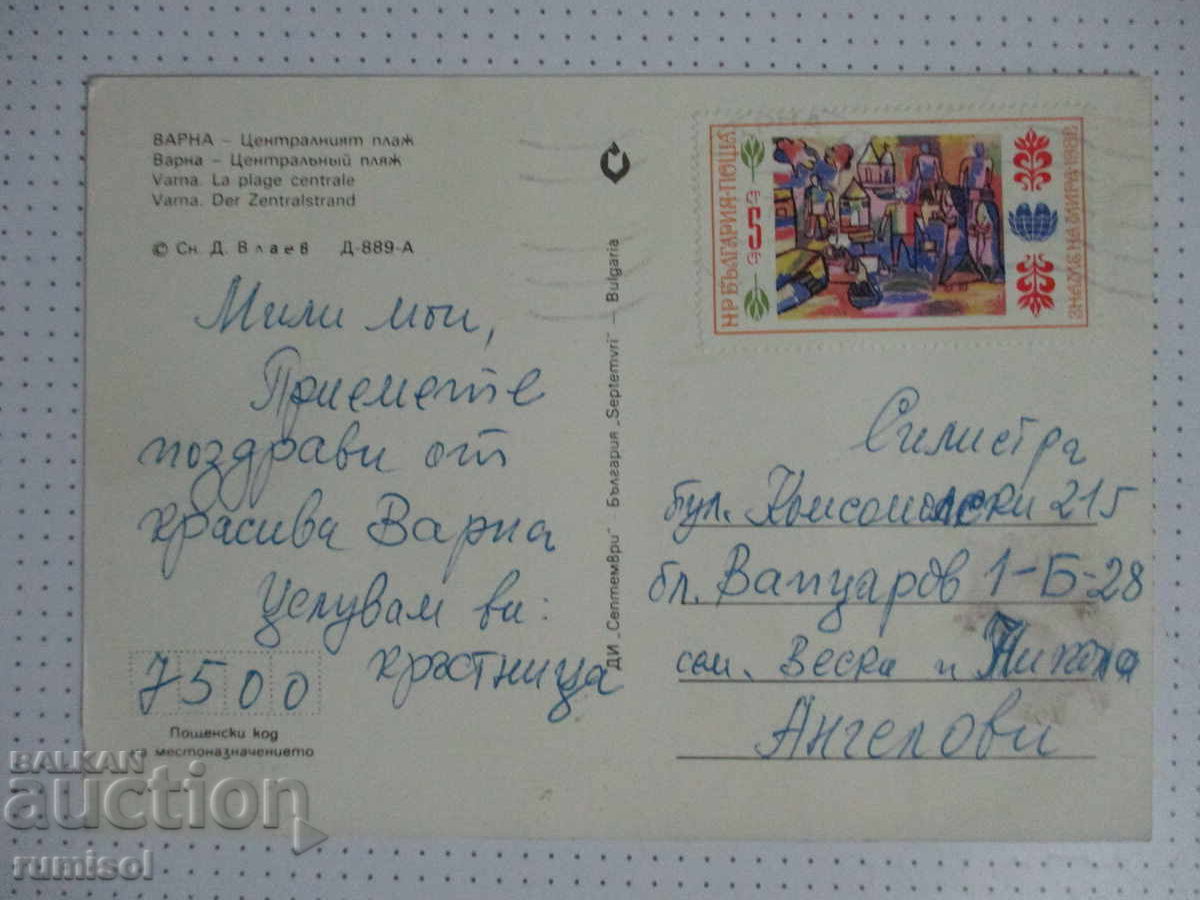 ВАРНА – Централният плаж
Варна – Центральный пляж
Varna. La plage centrale
Varna. Der Zentralstrand
© Сн. Д. Влаев Д-889-А
Мили мои,
Приемете
поздрави от
красива Варна
Целувам ви:
кръстница
7500
Пощенски код
на местоназначението
ДИ „Септември" – България „Septemvri" – Bulgaria
НР БЪЛГАРИЯ·ПОЩА
5
ЗНАМЕ НА МИРА·1982
Силистра
бул. Комсомолски 215
бл. Вапцаров 1-Б-28
сем. Веска и Никола
Ангелови
BALKAN
auction
rumisol